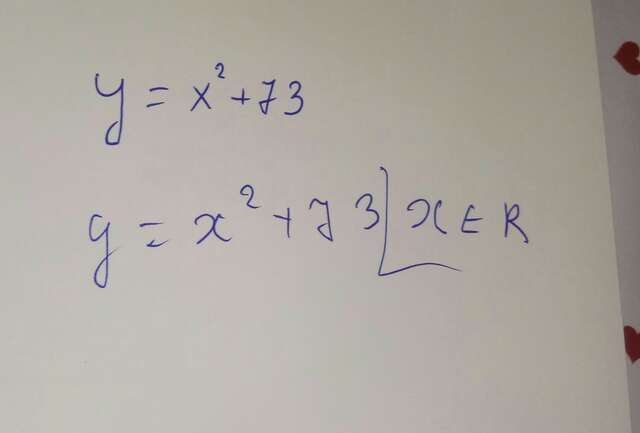 y = x² + 73
y = x² + 73 | x ∈ R